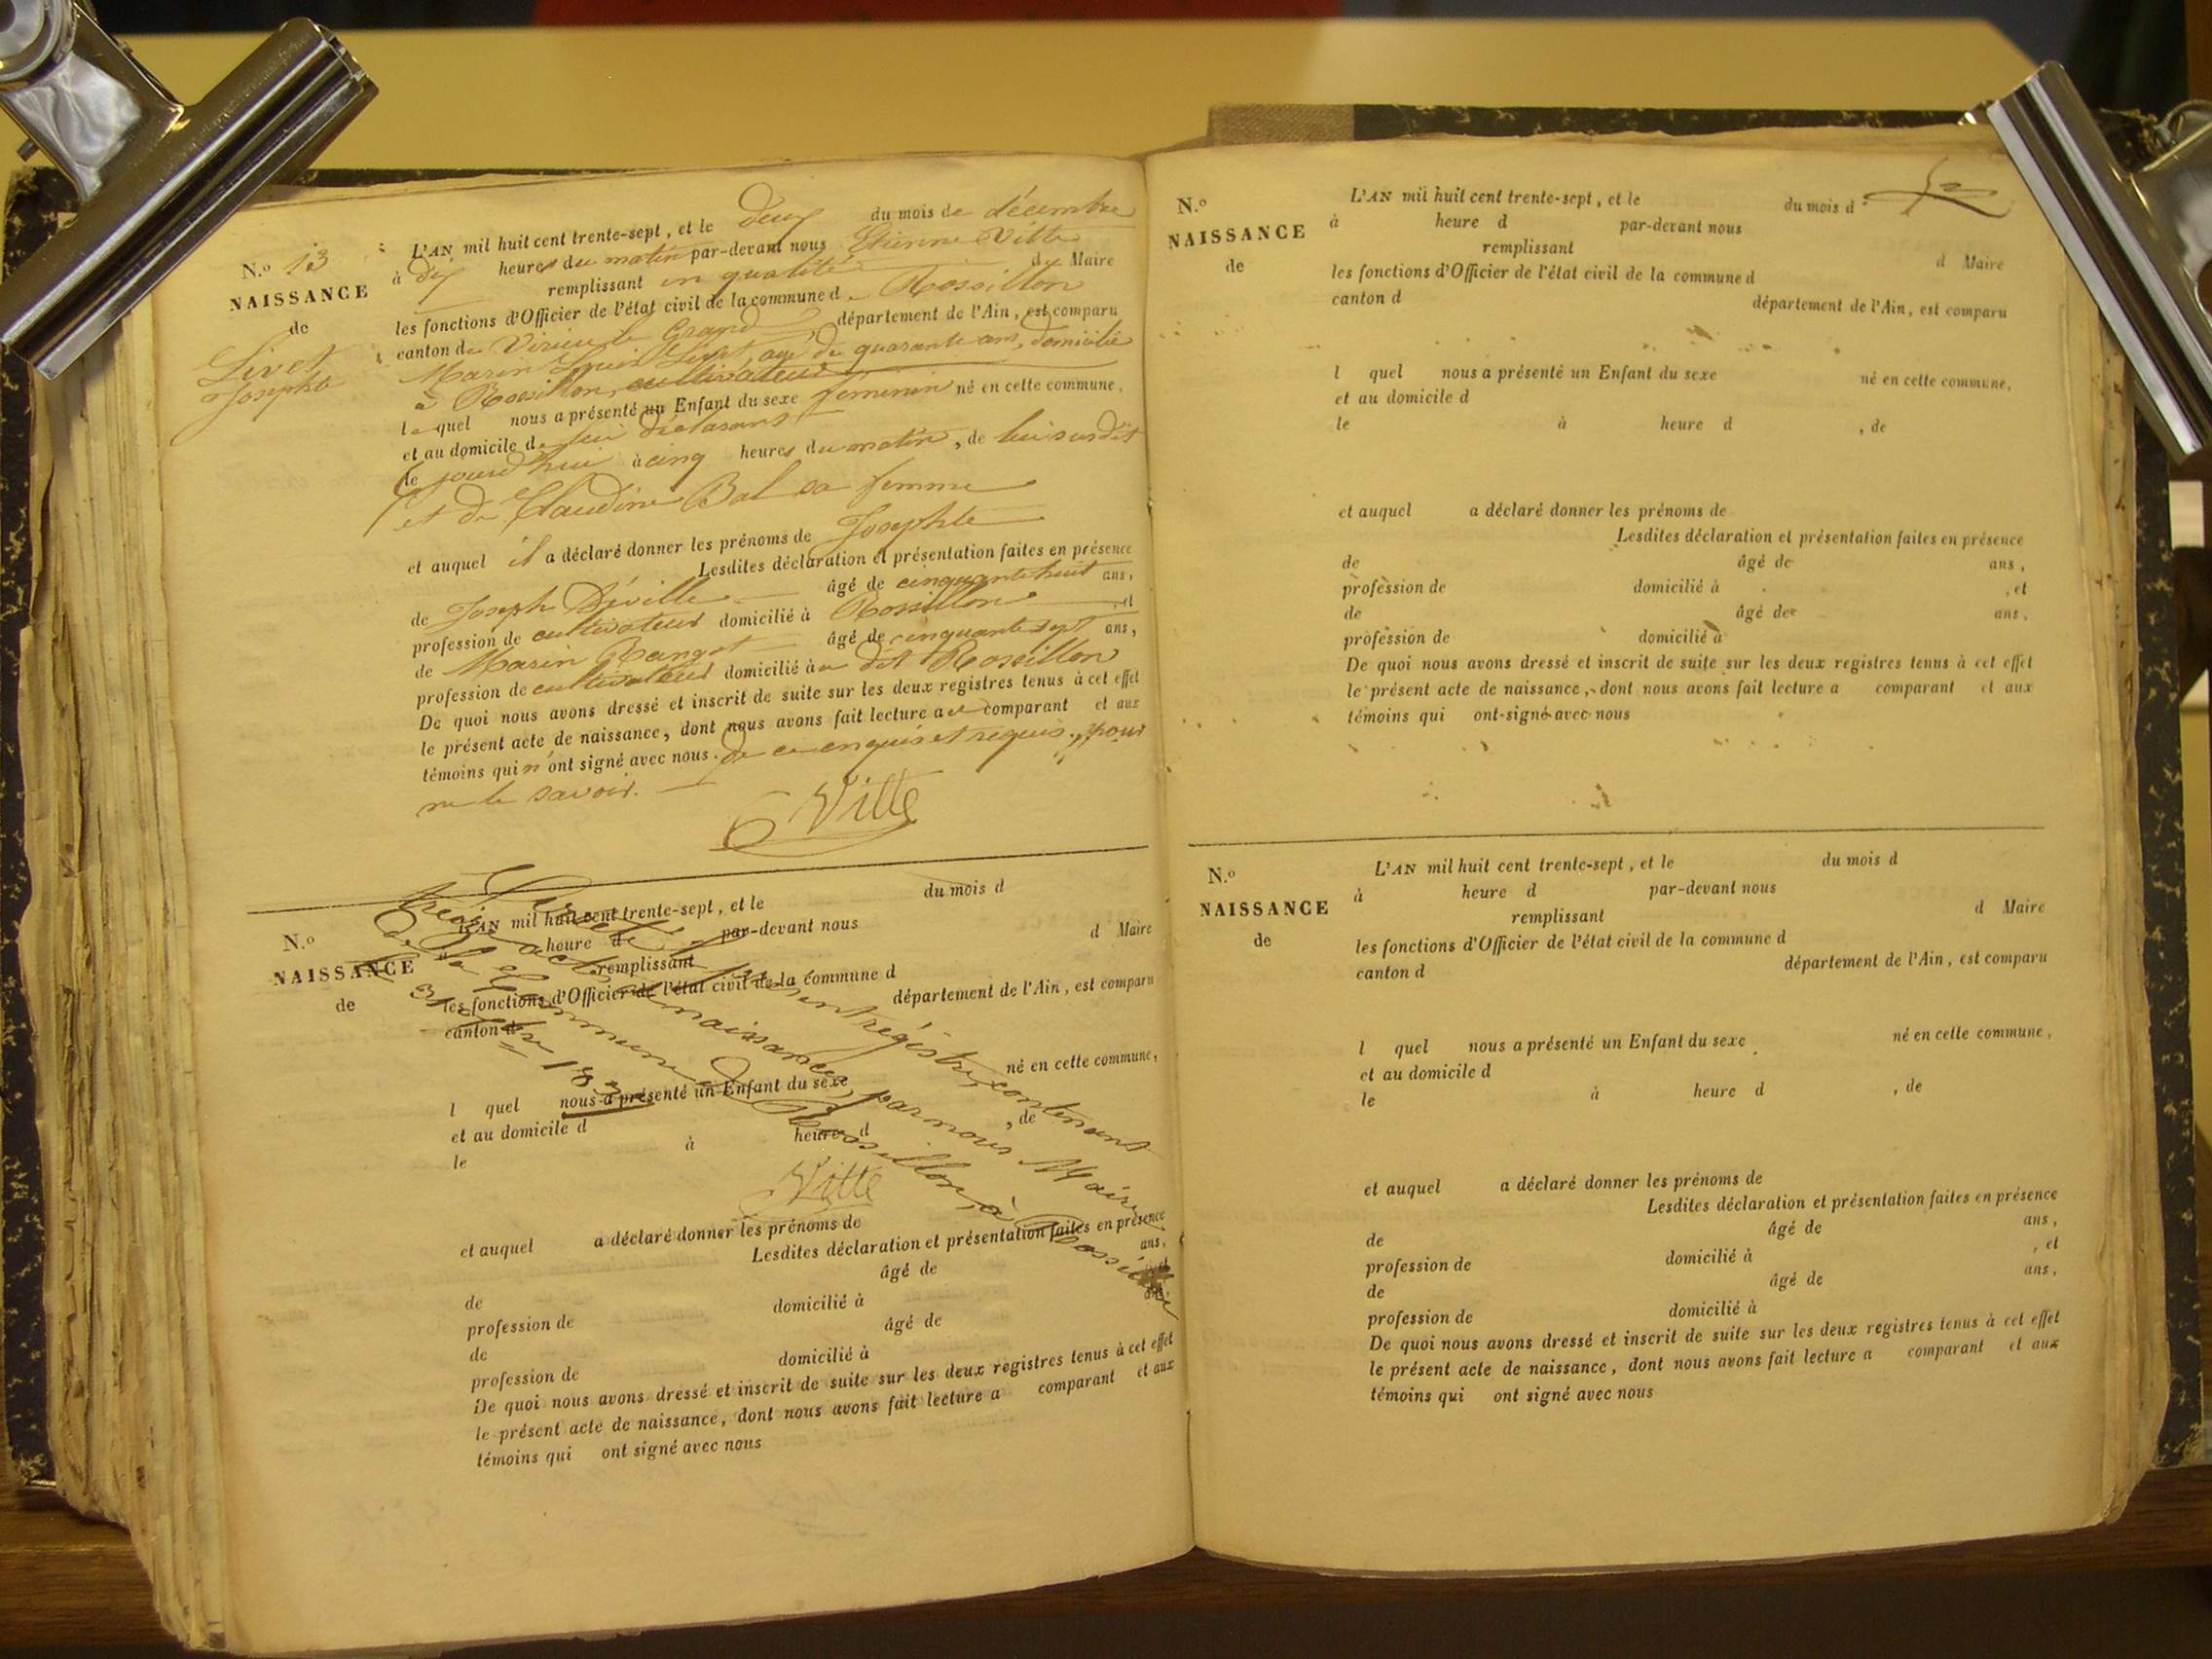 N.º 13
NAISSANCE
de
Livet
Josephte
L'AN mil huit cent trente-sept, et le deux du mois de décembre
à dix heures du matin par-devant nous Etienne Vitte
remplissant en qualité de Maire
les fonctions d'Officier de l'état civil de la commune de Rossillon
canton de Virieu le Grand, département de l'Ain, est comparu
Marin Louis Livet, agé de quarante ans, domicilié
à Rossillon, cultivateur
lequel nous a présenté un Enfant du sexe féminin né en cette commune,
et au domicile de lui déclarant
le jourd'hui à cinq heures du matin, de lui susdit
et de Claudine Bal sa femme
et auquel il a déclaré donner les prénoms de Josephte
Lesdites déclaration et présentation faites en présence
de Joseph Déville âgé de cinquante huit ans,
profession de cultivateur domicilié à Rossillon, et
de Marin Rangot âgé de cinquante sept ans,
profession de cultivateur domicilié à u dit Rossillon
De quoi nous avons dressé et inscrit de suite sur les deux registres tenus à cet effet
le présent acte de naissance, dont nous avons fait lecture au comparant et aux
témoins qui n'ont signé avec nous. de ce enquis et requis, pour
ne le savoir.
Vitte
N.º
NAISSANCE
de
L'AN mil huit cent trente-sept, et le du mois d
à heure d par-devant nous
remplissant d Maire
les fonctions d'Officier de l'état civil de la commune d
canton d département de l'Ain, est comparu
l quel nous a présenté un Enfant du sexe né en cette commune,
et au domicile d
le à heure d , de
et auquel a déclaré donner les prénoms de
Lesdites déclaration et présentation faites en présence
de âgé de ans,
profession de domicilié à
de âgé de
profession de domicilié à
De quoi nous avons dressé et inscrit de suite sur les deux registres tenus à cet effet
le présent acte de naissance, dont nous avons fait lecture a comparant et aux
témoins qui ont signé avec nous
registre, contenant
treize actes de naissances, par nous Maire
de la Commune de Rossillon, à Rossillon
le 31 Xbre 1837
Vitte
N.º
NAISSANCE
de
L'AN mil huit cent trente-sept, et le du mois d
à heure d par-devant nous
remplissant d Maire
les fonctions d'Officier de l'état civil de la commune d
canton d département de l'Ain, est comparu
l quel nous a présenté un Enfant du sexe né en cette commune,
et au domicile d
le à heure d , de
et auquel a déclaré donner les prénoms de
Lesdites déclaration et présentation faites en présence
de âgé de ans,
profession de domicilié à , et
de âgé de ans,
profession de domicilié à
De quoi nous avons dressé et inscrit de suite sur les deux registres tenus à cet effet
le présent acte de naissance, dont nous avons fait lecture a comparant et aux
témoins qui ont signé avec nous
N.º
NAISSANCE
de
L'AN mil huit cent trente-sept, et le du mois d
à heure d par-devant nous
remplissant d Maire
les fonctions d'Officier de l'état civil de la commune d
canton d département de l'Ain, est comparu
l quel nous a présenté un Enfant du sexe né en cette commune,
et au domicile d
le à heure d , de
et auquel a déclaré donner les prénoms de
Lesdites déclaration et présentation faites en présence
de âgé de ans,
profession de domicilié à , et
de âgé de ans,
profession de domicilié à
De quoi nous avons dressé et inscrit de suite sur les deux registres tenus à cet effet
le présent acte de naissance, dont nous avons fait lecture a comparant et aux
témoins qui ont signé avec nous